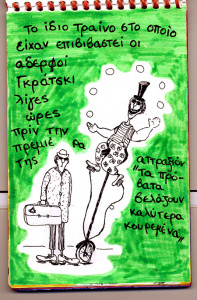 Το ίδιο Τραίνο στο οποίο
είχαν επιβιβαστεί οι
αδερφοί
Γκράτσκι
λίγες
ώρες
πριν την
πρεμιέ ρα
της
ατραξιόν
„Τα πρό-
βατα
βελάζουν
καλύτερα
κουρεμένα„